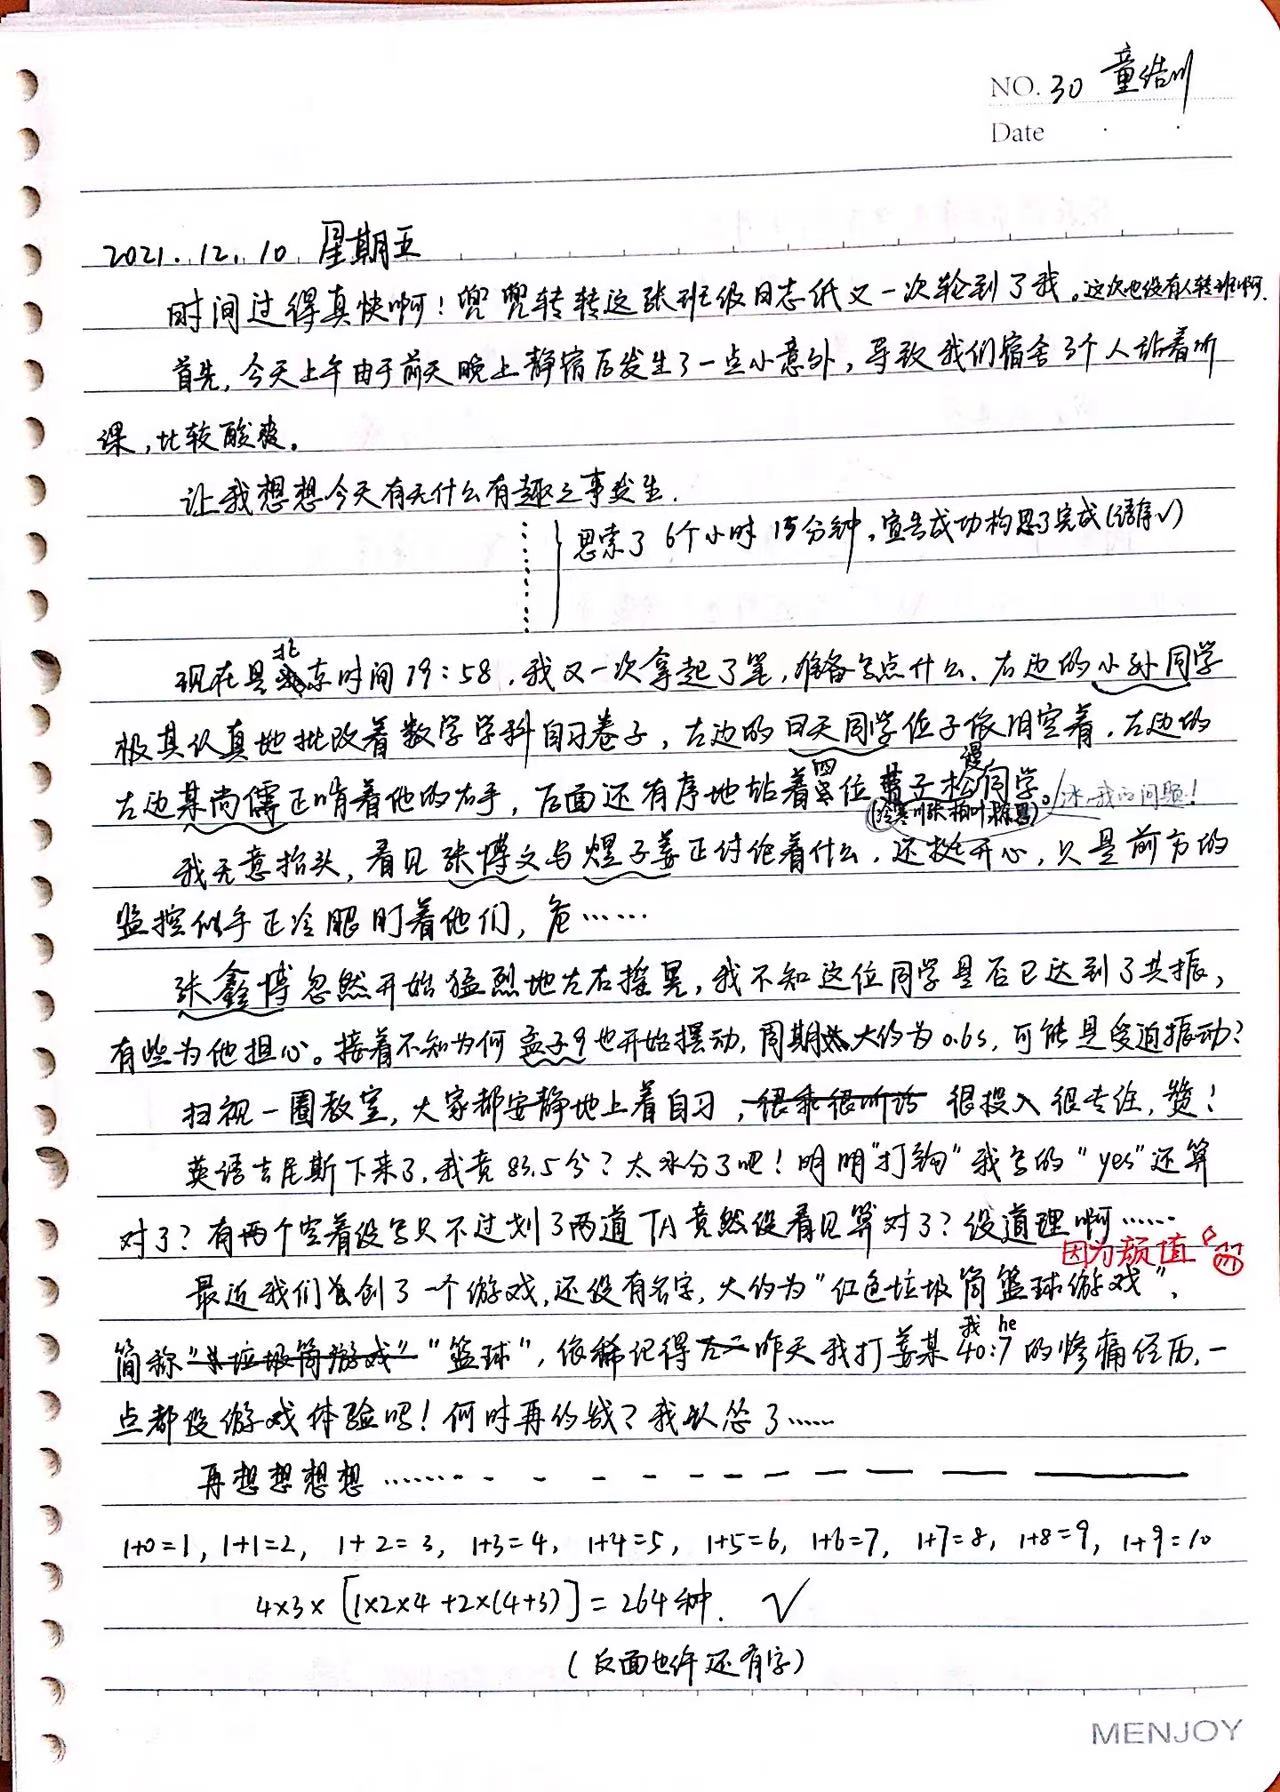 NO. 30 童浩川
Date
2021.12.10 星期五
时间过得真快啊！兜兜转转这张班级日志纸又一次轮到了我。这次也没有人转班啊.
首先，今天上午由于前天晚上静宿后发生了一点小意外，导致我们宿舍3个人站着听
课，比较酸爽。
让我想想今天有无什么有趣之事发生.
思索了 6个小时 15分钟，宣告成功构思了完成(语序√)
现在是北京时间19:58，我又一次拿起了笔，准备写点什么、右边的小孙同学
极其认真地批改着数学学科自习卷子，左边的昊天同学位子依旧空着，左边的
左边某尚儒正啃着他的右手，后面还有序地站着四位曹子松同学。冰~我的问题！
我无意抬头，看见张博文与煜子姜正讨论着什么，还挺开心，只是前方的
监控似乎正冷眼盯着他们，危……
张鑫博忽然开始猛烈地左右摇晃，我不知这位同学是否已达到了共振，
有些为他担心。接着不知为何孟子も开始摆动，周期大约为0.6s，可能是受迫振动？
扫视一圈教室，大家都安静地上着自习，很乖很听话 很投入很专注，赞！
英语吉尼斯下来了，我竟83.5分？太水分了吧！明明"打钩"我写的"yes"还算
对了？有两个空着没写只不过划了两道TA竟然没看见算对了？没道理啊……
因为颜值
最近我们创了一个游戏，还没有名字，大约为"红色垃圾筒篮球游戏"，
简称"垃圾筒游戏""篮球"，依稀记得昨天我打姜某40:7的惨痛经历，一
我 he
点都没游戏体验吗！何时再约战？我认怂了……
再想想想想……
1+0=1, 1+1=2, 1+2=3, 1+3=4, 1+4=5, 1+5=6, 1+6=7, 1+7=8, 1+8=9, 1+9=10
4×3×[1×2×4+2×(4+3)]=264种. √
(反面也许还有字)
MENJOY